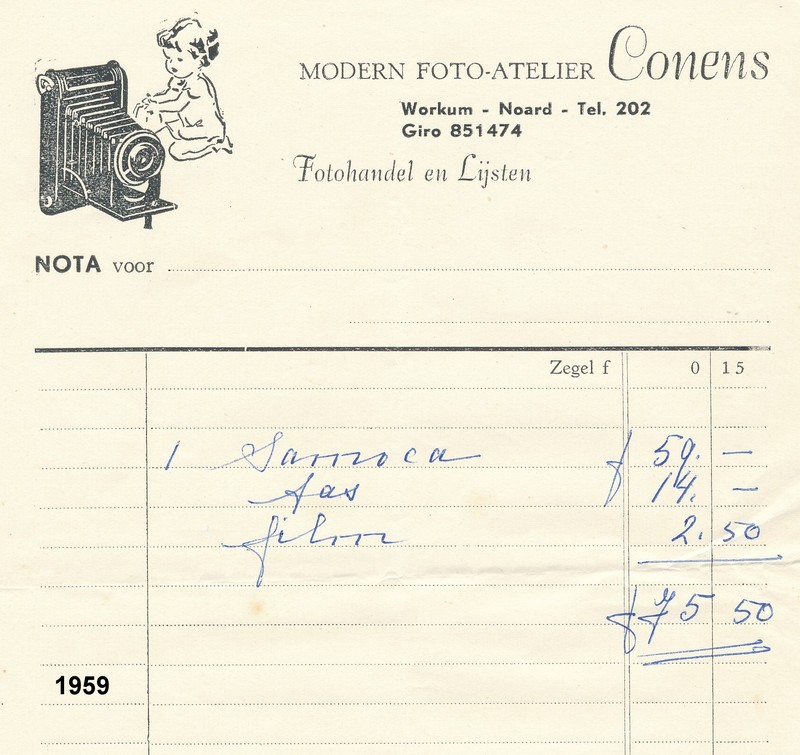 MODERN FOTO-ATELIER Conens
Workum - Noard - Tel. 202
Giro 851474
Fotohandel en Lijsten
NOTA voor
Zegel f 0 15
1 Samoca f 59. —
tas 14. —
film 2. 50
f 75 50
1959